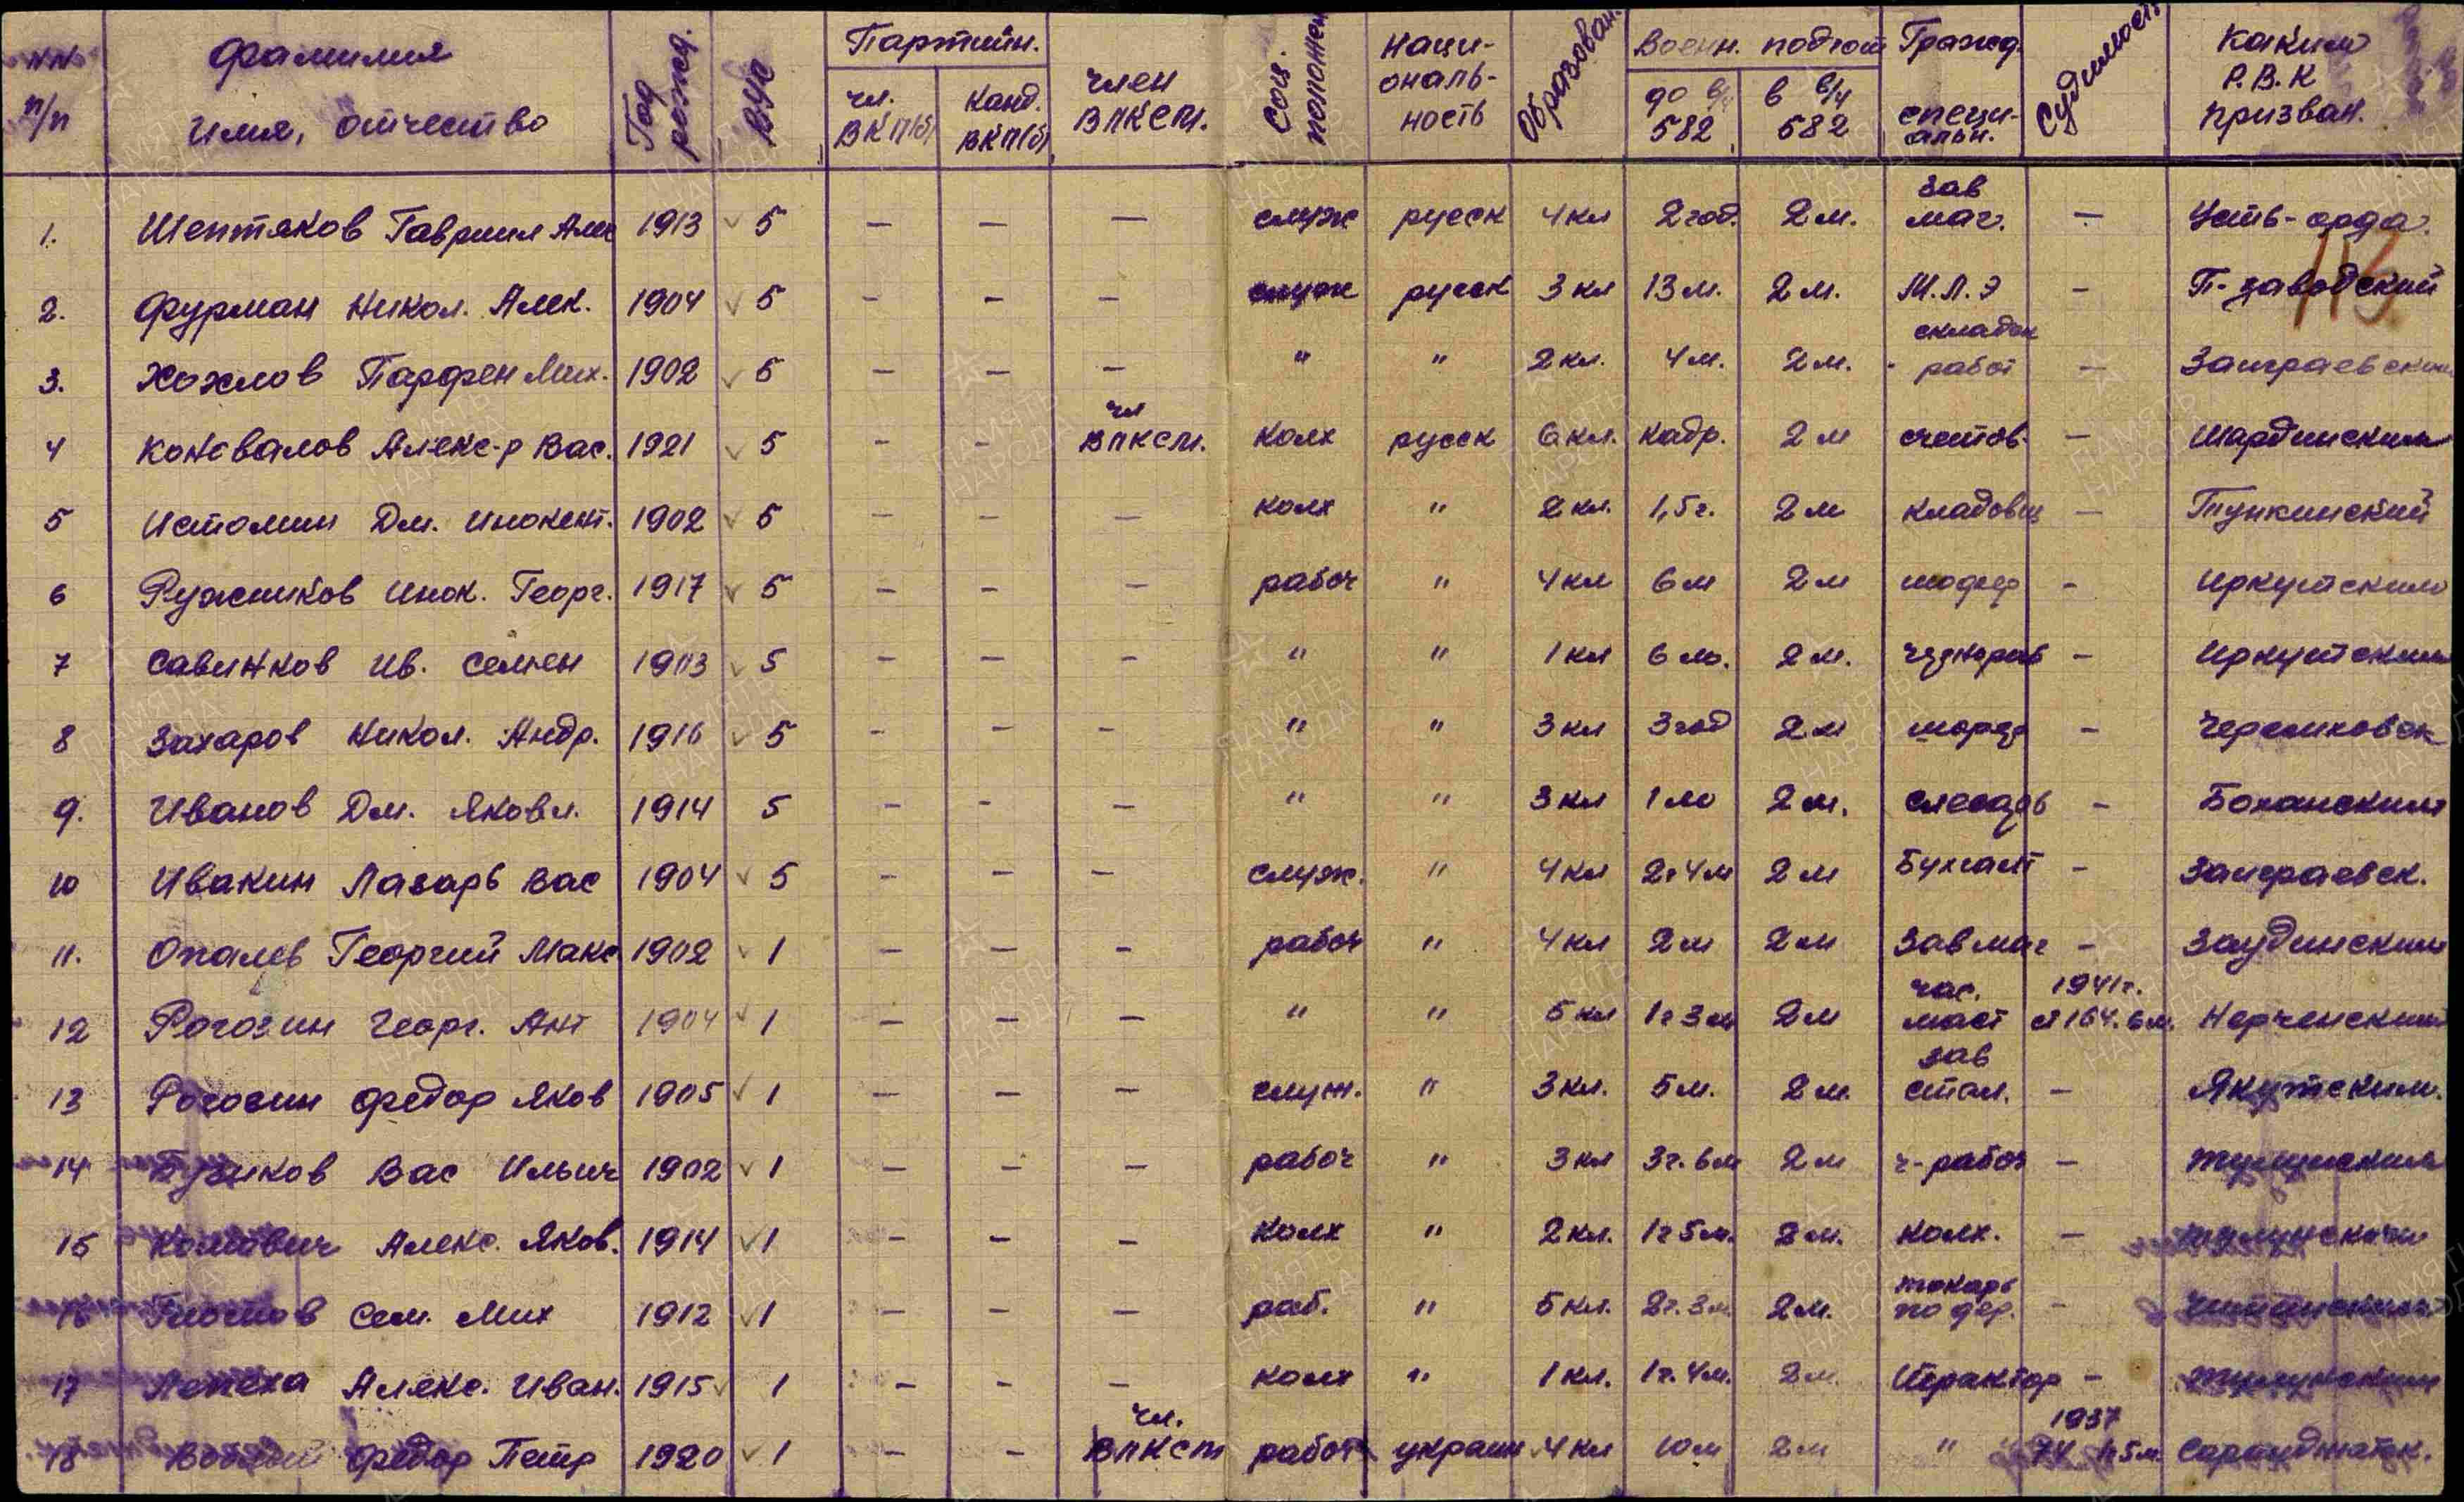 NN п/п Фамилия Имя, отчество Год рожд. ВУС Партийн. чл. ВКП(б) Канд. ВКП(б) член ВЛКСМ. Соц. положен Наци-ональ-ность Образован. Военн. подгот до в/ч 582 в в/ч 582 Гражд. специ-альн. Судимость Каким Р.В.К призван.
1. Шептяков Гавриил Алек 1913 5 – – – служ русск 4 кл 2 год. 2 м. Зав маг. – Усть-орда.
2. Фурман Никол. Алек. 1904 5 – – – служ русск 3 кл 13 м. 2 м. М.Л.Э – П-заводский
3. Хохлов Парфен Мих. 1902 5 – – – " " 2 кл. 4 м. 2 м. складск работ – Заиграевским
4 Коновалов Алекс-р Вас. 1921 5 – – чл ВЛКСМ. колх русск 6 кл. кадр. 2 м счетов. –
5 Истомин Дм. Инокент. 1902 5 – – – колх " 2 кл. 1,5 г. 2 м кладовщ – Тункинский
6 Ружников Инок. Георг. 1917 5 – – – рабоч " 4 кл 6 м 2 м шофер – Иркутским
7 Савинков Ив. Семен 1903 5 – – – " " 1 кл 6 м. 2 м. чернораб – Иркутским
8 Захаров Никол. Андр. 1916 5 – – – " " 3 кл 3 год 2 м шофер – Черемховск
9. Иванов Дм. Яковл. 1914 5 – – – " " 3 кл 1 м 2 м. слесарь – Боханским
10 Ивакин Лазарь Вас 1904 5 – – – служ. " 4 кл 2г 4 м 2 м Бухгалт – Заиграевск.
11. Опалев Георгий Макс 1902 1 – – – рабоч " 4 кл 2 м 2 м Зав маг – Заудинским
12 Рогозин Георг. Ант 1904 1 – – – " " 5 кл 1г 3 м 2 м час. маст 1941 г. ст 164. 6 м. Нерченским
13 Рогозин Федор Яков 1905 1 – – – служ. " 3 кл. 5 м. 2 м. зав стол. – Якутским.
14 Бузиков Вас Ильич 1902 1 – – – рабоч " 3 кл 3г. 6 м 2 м ч-рабоч – Тулунским
15 Алекс. Яков. 1914 1 – – – колх " 2 кл. 1г 5 м. 2 м. колх. – Тулунским
16 Сем. Мих 1912 1 – – – раб. " 5 кл. 2г. 3 м. 2 м. токарь по дер. – Читинским
17 Лепеха Алекс. Иван. 1915 1 – – – колх " 1 кл. 1г. 4 м. 2 м. Трактор – Тулунским
18 Федор Петр 1920 1 – – чл. ВЛКСМ рабоч украин 4 кл 10 м 2 м " 1937 74 1г 5 м.